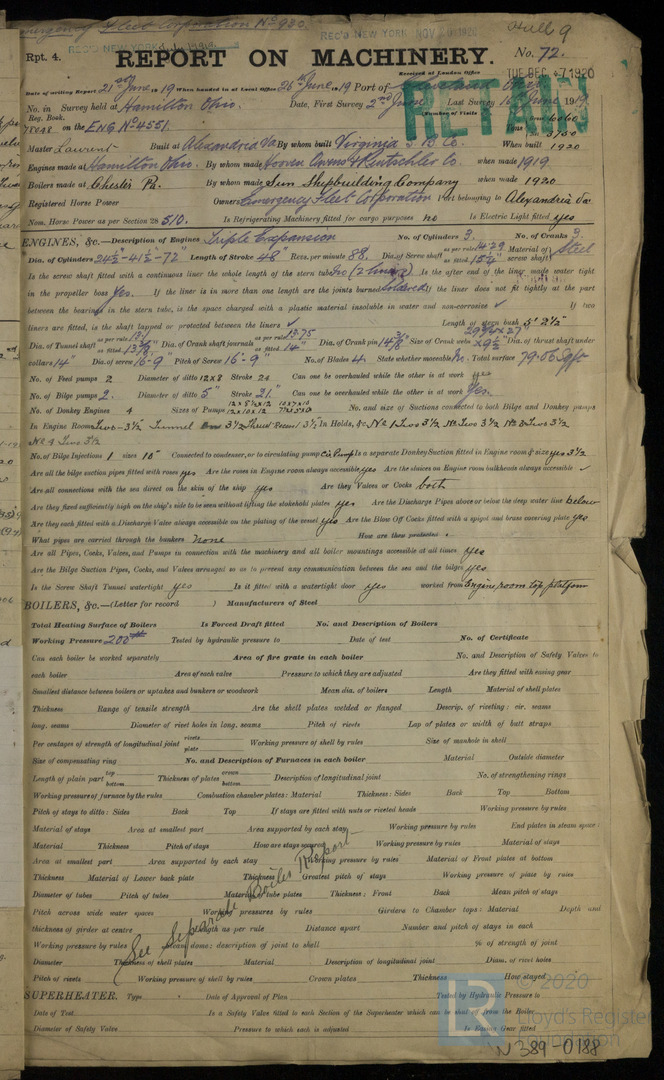 Emergency Fleet Corporation No 980.
Hull 9
REC'D NEW YORK NOV 1920
REC'D NEW YORK 1919
Rpt. 4. REPORT ON MACHINERY. No. 72.
Received at London Office TUE. DEC. 7 1920
Date of writing Report 21st June 1919 When handed in at Local Office 26th June 1919 Port of Cleveland Ohio
RETAIN
No. in Survey held at Hamilton Ohio. Date, First Survey 2nd June Last Survey 16 June 1919
Reg. Book. (Number of Visits
78048 on the ENG No 4551.
Master Laurent Built at Alexandria Va By whom built Virginia S. B. Co. When built 1920
Engines made at Hamilton Ohio. By whom made Hooven Owens & Rentschler Co. when made 1919.
Boilers made at Chester Pa. By whom made Sun Shipbuilding Company when made 1920
Registered Horse Power Owners Emergency Fleet Corporation Port belonging to Alexandria Va
Nom. Horse Power as per Section 28 510. Is Refrigerating Machinery fitted for cargo purposes no Is Electric Light fitted yes
ENGINES, &c.—Description of Engines Triple Expansion No. of Cylinders 3. No. of Cranks 3.
Dia. of Cylinders 24½"-41½-72" Length of Stroke 48" Revs. per minute 88. Dia. of Screw shaft as per rule 14.79 as fitted 15½" Material of screw shaft Steel
Is the screw shaft fitted with a continuous liner the whole length of the stern tube No (2 liners) Is the after end of the liner made water tight
in the propeller boss Yes. If the liner is in more than one length are the joints burned Soldered If the liner does not fit tightly at the part
between the bearings in the stern tube, is the space charged with a plastic material insoluble in water and non-corrosive ✓ If two
liners are fitted, is the shaft lapped or protected between the liners ✓ Length of stern bush 5' 2½"
Dia. of Tunnel shaft as per rule as fitted 13⅞" Dia. of Crank shaft journals as per rule 13.75 as fitted 14" Dia. of Crank pin Size of Crank webs Dia. of thrust shaft under
collars 14" Dia. of screw 16-9" Pitch of Screw 16-9" No. of Blades 4 State whether moveable No. Total surface 79.06 sqft
No. of Feed pumps 2 Diameter of ditto 12x8 Stroke 24 Can one be overhauled while the other is at work yes
No. of Bilge pumps 2. Diameter of ditto 5" Stroke 21" Can one be overhauled while the other is at work Yes.
No. of Donkey Engines 4 Sizes of Pumps No. and size of Suctions connected to both Bilge and Donkey pumps
In Engine Room Two-3½ Tunnel One 3½ In Holds, &c. No 1 Two 3½ No 2 Two 3½ No 3 Two 3½
No 4 Two 3½
No. of Bilge Injections 1 sizes 10" Connected to condenser, or to circulating pump Cir. Pump Is a separate Donkey Suction fitted in Engine room & size yes 3½
Are all the bilge suction pipes fitted with roses yes Are the roses in Engine room always accessible yes Are the sluices on Engine room bulkheads always accessible ✓
Are all connections with the sea direct on the skin of the ship yes Are they Valves or Cocks both
Are they fixed sufficiently high on the ship's side to be seen without lifting the stokehold plates yes Are the Discharge Pipes above or below the deep water line below
Are they each fitted with a Discharge Valve always accessible on the plating of the vessel yes Are the Blow Off Cocks fitted with a spigot and brass covering plate yes
What pipes are carried through the bunkers None How are they protected
Are all Pipes, Cocks, Valves, and Pumps in connection with the machinery and all boiler mountings accessible at all times yes
Are the Bilge Suction Pipes, Cocks, and Valves arranged so as to prevent any communication between the sea and the bilges yes
Is the Screw Shaft Tunnel watertight yes Is it fitted with a watertight door yes worked from Engine room top platform
BOILERS, &c.—(Letter for record ) Manufacturers of Steel
Total Heating Surface of Boilers Is Forced Draft fitted No. and Description of Boilers
Working Pressure 200 lbs Tested by hydraulic pressure to Date of test No. of Certificate
Can each boiler be worked separately Area of fire grate in each boiler No. and Description of Safety Valves to
each boiler Area of each valve Pressure to which they are adjusted Are they fitted with easing gear
Smallest distance between boilers or uptakes and bunkers or woodwork Mean dia. of boilers Length Material of shell plates
Thickness Range of tensile strength Are the shell plates welded or flanged Descrip. of riveting: cir. seams
long. seams Diameter of rivet holes in long. seams Pitch of rivets Lap of plates or width of butt straps
Per centages of strength of longitudinal joint rivets plate Working pressure of shell by rules Size of manhole in shell
Size of compensating ring No. and Description of Furnaces in each boiler Material Outside diameter
Length of plain part top bottom Thickness of plates crown bottom Description of longitudinal joint No. of strengthening rings
Working pressure of furnace by the rules Combustion chamber plates: Material Thickness: Sides Back Top Bottom
Pitch of stays to ditto: Sides Back Top If stays are fitted with nuts or riveted heads Working pressure by rules
Material of stays Area at smallest part Area supported by each stay Working pressure by rules End plates in steam space:
Material Thickness Pitch of stays How are stays secured Working pressure by rules Material of stays
Area at smallest part Area supported by each stay Working pressure by rules Material of Front plates at bottom
Thickness Material of Lower back plate Thickness Greatest pitch of stays Working pressure of plate by rules
Diameter of tubes Pitch of tubes Material of tube plates Thickness: Front Back Mean pitch of stays
Pitch across wide water spaces Working pressures by rules Girders to Chamber tops: Material Depth and
thickness of girder at centre Length as per rule Distance apart Number and pitch of stays in each
Working pressure by rules Steam dome: description of joint to shell % of strength of joint
Diameter Thickness of shell plates Material Description of longitudinal joint Diam. of rivet holes
Pitch of rivets Working pressure of shell by rules Crown plates Thickness How stayed
See Separate Boiler Report
SUPERHEATER. Type Date of Approval of Plan Tested by Hydraulic Pressure to
Date of Test Is a Safety Valve fitted to each Section of the Superheater which can be shut off from the Boiler
Diameter of Safety Valve Pressure to which each is adjusted Is Easing Gear fitted
© 2020
LR Lloyd's Register
Foundation
W389-0188